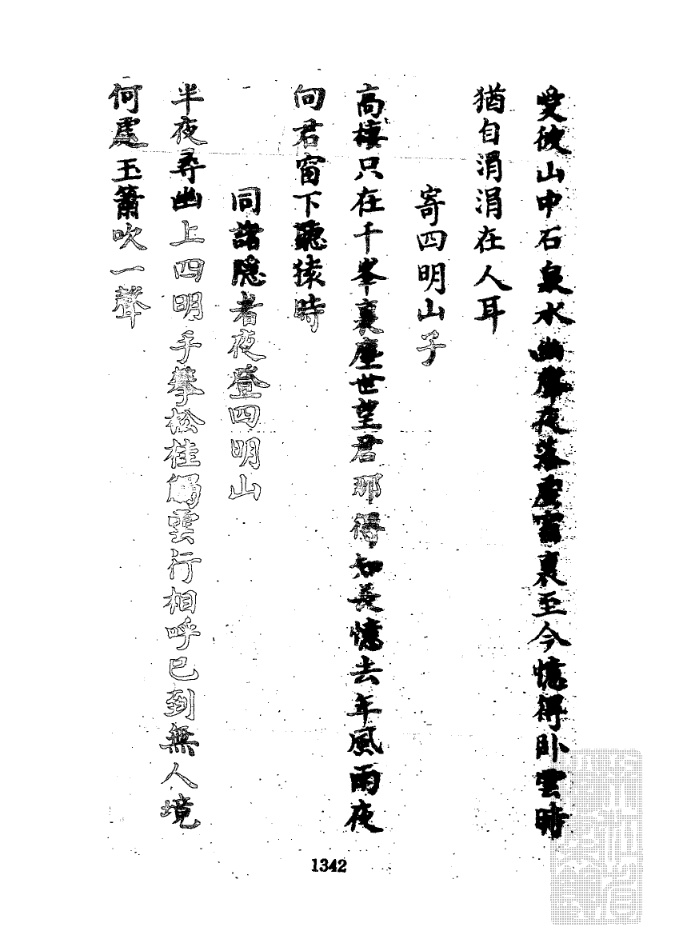 愛彼山中石泉水幽聲夜落虛窗裏至今憶得卧雲時
猶自涓涓在人耳
寄四明山子
高棲只在千峯裏塵世望君那得知長憶去年風雨夜
向君窗下聽猿時
同諸隱者夜登四明山
半夜尋幽上四明手攀松桂觸雲行相呼已到無人境
何處玉簫吹一聲
1342